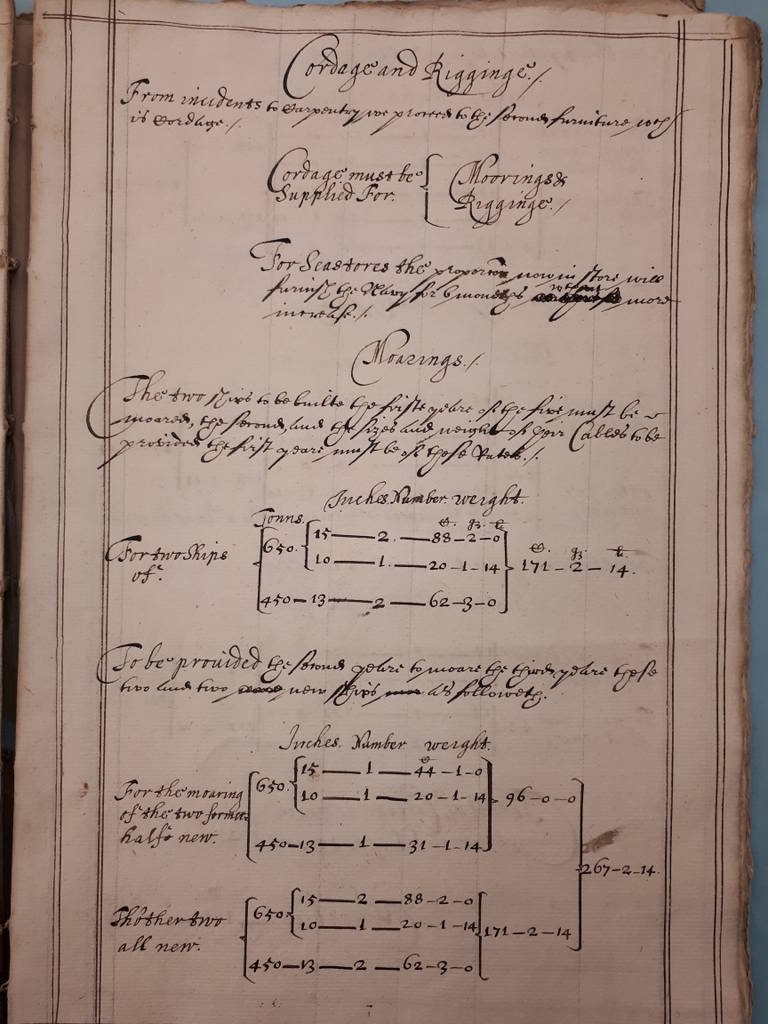 Cordage and Rigginge./
From incidents to Carpentry we proceed to the second furniture wch
is Cordage./
Cordage must be
Supplied For.
Moorings &
Rigginge./
For Seastores the proporcon now in store will
furnish the Navy for 6 monethes without more
increase./.
Moarings./
The two ships to be builte the firste yeare of the five must be
moared, the second, and the sizes and weight of their Cables to be
provided the first yeare must be of these Rates./.
Inches. Number. weight.
Tonns. C. qr. l
For two Ships
of.
650. 15 — 2. — 88 – 2 – 0
10 — 1. — 20 – 1 – 14
450 – 13 — 2 — 62 – 3 – 0
C. qr. l.
171 – 2 – 14.
To be provided the second yeare to moare the third yeare these
two and two new ships as followeth.
Inches. Number weight.
C
For the moaring
of the two former
halfe new.
650. 15 — 1 — 44 – 1 – 0
10 — 1 — 20 – 1 – 14
450 – 13 — 1 — 31 – 1 – 14
96 – 0 – 0
267 – 2 – 14.
Thother two
all new.
650. 15 — 2 — 88 – 2 – 0
10 — 1 — 20 – 1 – 14
450 – 13 — 2 — 62 – 3 – 0
171 – 2 – 14